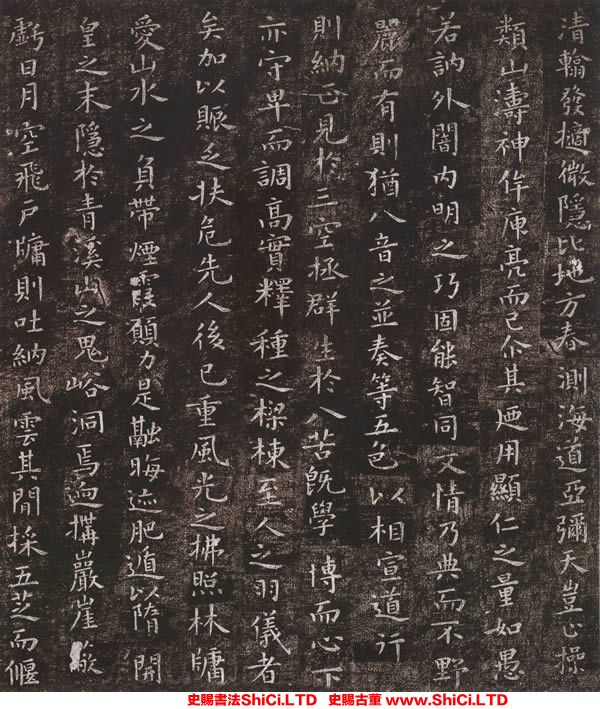 清翰發擿微隱比地方春測海道亞彌天豈止操
類山濤神侔庾亮而已尒其廼用顯仁之量如愚
若訥外闇內明之巧固能智同文情乃典而不野
麗而有則猶八音之並奏等五色以相宣道行
則納正見於三空拯群生於八苦既學博而心下
亦守卑而調高實釋種之樑棟至人之羽儀者
矣加以賑乏扶危先人後已重風光之拂照林牖
愛山水之負帶煙霞願力是融晦迹肥遁以隋開
皇之末隱於青溪山之鬼峪洞焉迺構巖崖
虧日月空飛戶牖則吐納風雲其間採五芝而偃
史賜書法ShiCi.LTD 史賜古董 www.ShiCi.LTD